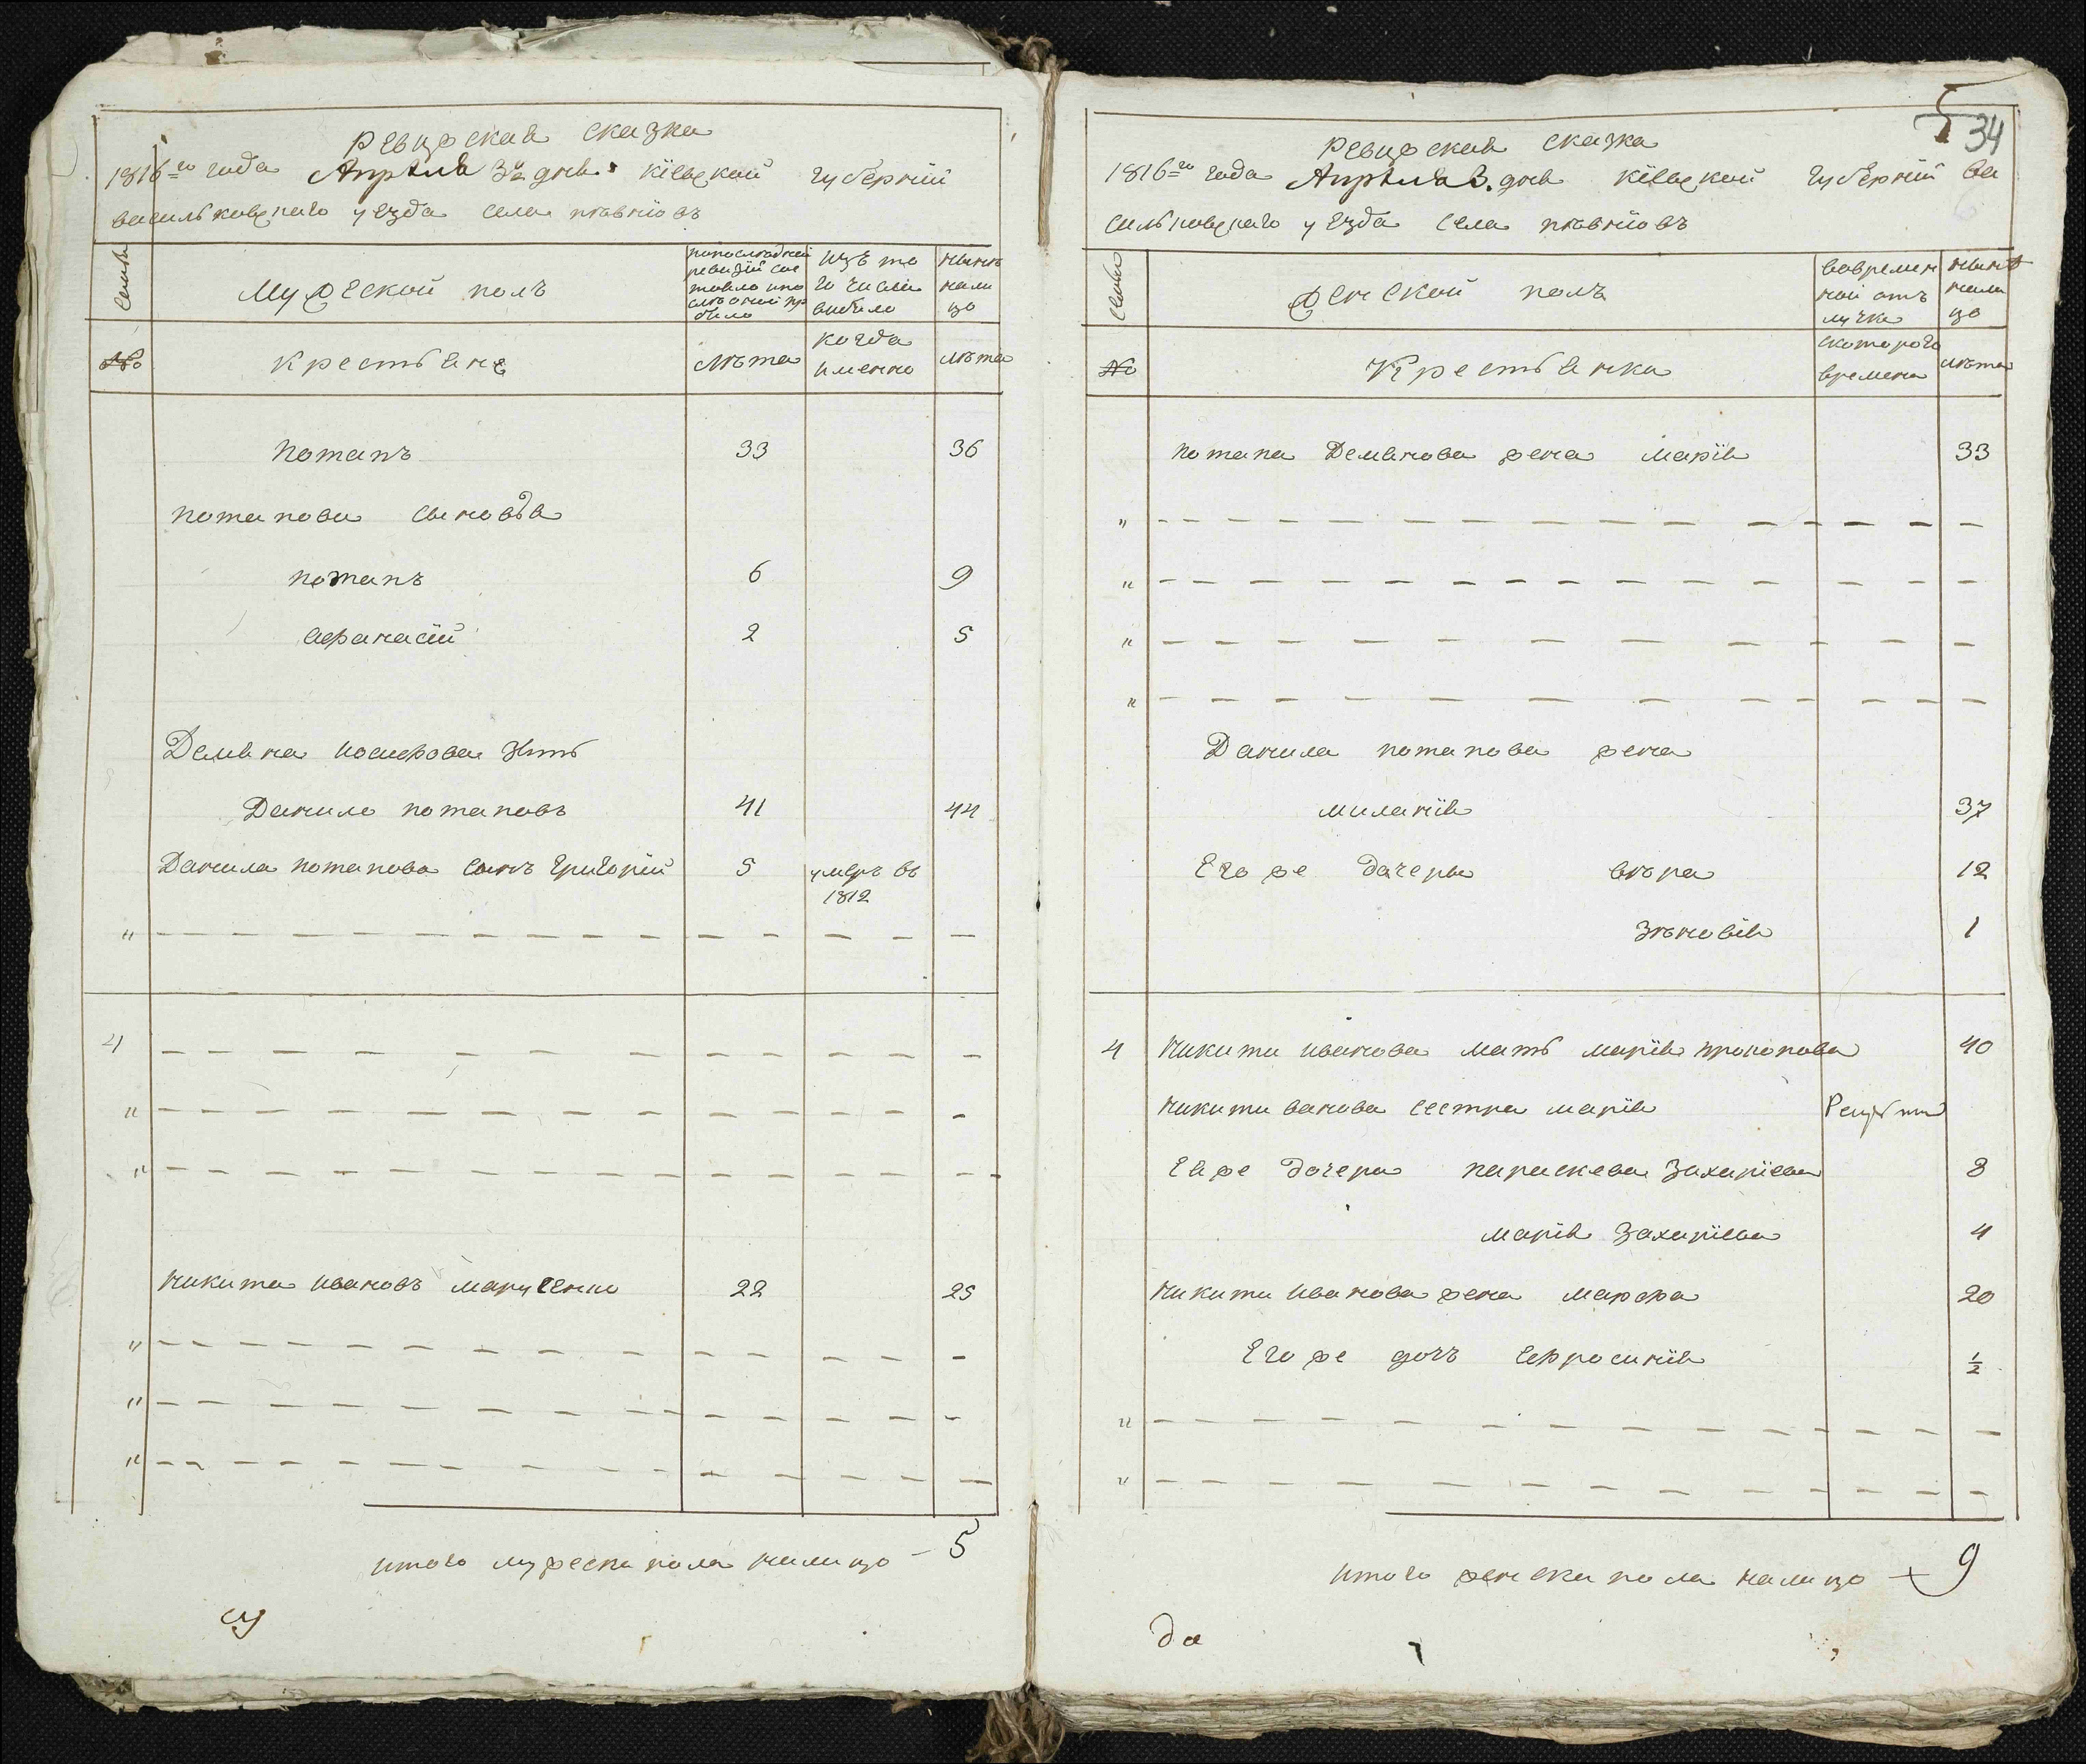 Ревижская сказка
1816го года Апреля 3го дня Кіевской губерніи
васильковскаго уезда села пивніовъ
Семьи
Мужеской полъ
попоследней ревизіи состояло ипосле оной прибыло
Изъ того числа выбыло
Ныне налицо
№
Крестьяне
Лѣта
когда именно
лѣта
потапъ 33 36
потапова сыновъя
потапъ 6 9
афанасій 2 5
Демяна иосифова зять
Данило потаповъ 41 44
Данила потапова сынъ григорій 5 умеръ въ 1812
" — — — — —
4 — — — — —
" — — — — —
" — — — — —
никита ивановъ марусенко 22 25
" — — — — —
" — — — — —
" — — — — —
итого мужеска пола налицо – 5
5
34
Ревижская сказка
1816го года Апреля 3. дня Кіевской губерніи ва
сильковскаго уезда села пивніовъ
Семьи
Женской полъ
вовременной отлучке
Ныне налицо
№
Крестьянка
скоторого времени
лѣта
потапа Демянова жена Марія 33
" — — — — —
" — — — — —
" — — — — —
" — — — — —
Данила потапова жена
миланія 37
Его же дочеры вѣра 12
зѣновія 1
4 никиты иванова мать марія прокопова 40
никиты ванова сестра марія
Ея же дочери параскева Захаріева 8
марія Захаріева 4
никиты иванова жена марфа 20
Его же дочь Ефросинія ½
" — — — — —
" — — — — —
итого женска пола налицо – 9
да